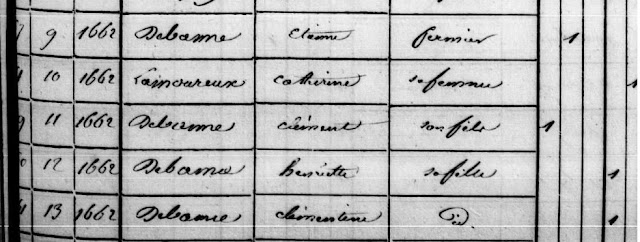 9 1662 Debanne etienne fermier 1
10 1662 Lamoureux catherine sa femme 1
11 1662 Debanne clément son fils 1
12 1662 Debanne henriette sa fille 1
13 1662 Debanne clémentine id 1